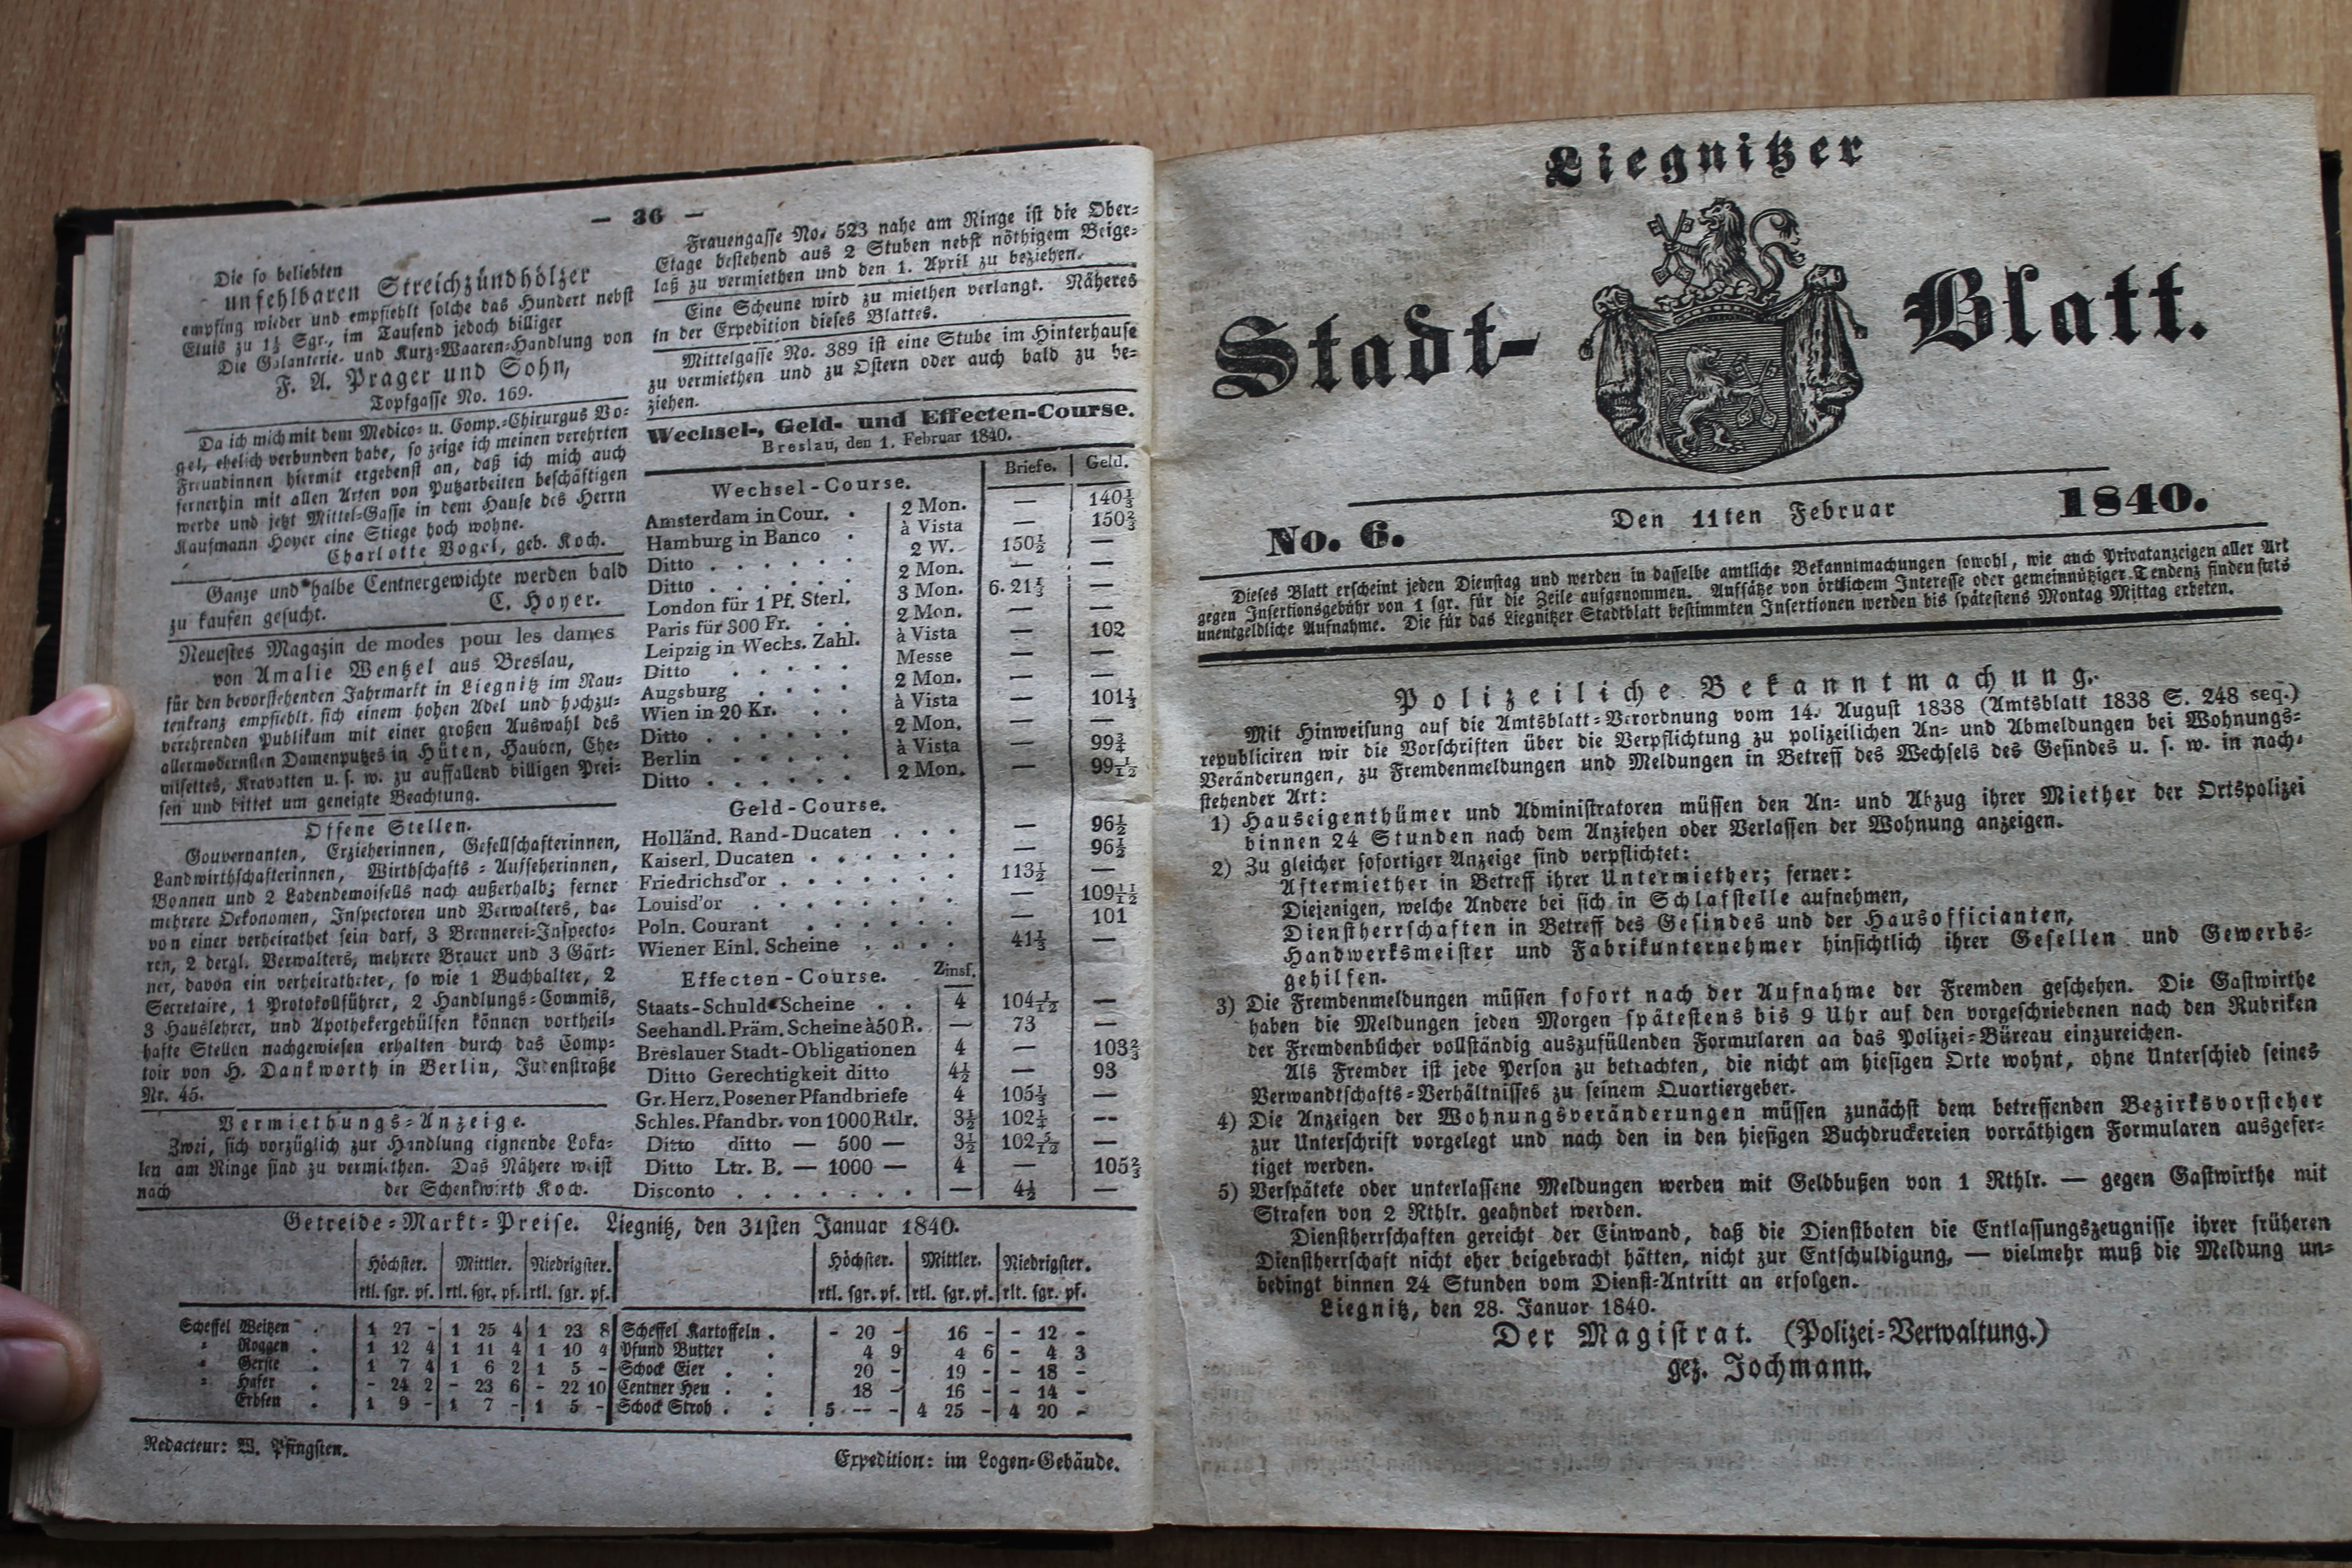 — 36 —
Die so beliebten
unfehlbaren Streichzündhölzer
empfing wieder und empfiehlt solche das Hundert nebst
Etuis zu 1½ Sgr., im Tausend jedoch billiger
Die Galanterie- und Kurz-Waaren-Handlung von
F. A. Prager und Sohn,
Topfgasse No. 169.
Da ich mich mit dem Medico- u. Comp.-Chirurgus Vo-
gel, ehelich verbunden habe, so zeige ich meinen verehrten
Freundinnen hiermit ergebenst an, daß ich mich auch
fernerhin mit allen Arten von Putzarbeiten beschäftigen
werde und jetzt Mittel-Gasse in dem Hause des Herrn
Kaufmann Hoyer eine Stiege hoch wohne.
Charlotte Vogel, geb. Koch.
Ganze und halbe Centnergewichte werden bald
zu kaufen gesucht. C. Hoyer.
Neuestes Magazin de modes pour les dames
von Amalie Wentzel aus Breslau,
für den bevorstehenden Jahrmarkt in Liegnitz im Rau-
tenkranz empfiehlt sich einem hohen Adel und hochzu-
verehrenden Publikum mit einer großen Auswahl des
allermodernsten Damenputzes in Hüten, Hauben, Che-
misettes, Kravatten u. s. w. zu auffallend billigen Prei-
sen und bittet um geneigte Beachtung.
Offene Stellen.
Gouvernanten, Erzieherinnen, Gesellschafterinnen,
Landwirthschafterinnen, Wirthschafts-Aufseherinnen,
Bonnen und 2 Ladendemoisells nach außerhalb; ferner
mehrere Oekonomen, Inspectoren und Verwalters, da-
von einer verheirathet sein darf, 3 Brennerei-Inspecto-
ren, 2 dergl. Verwalters, mehrere Brauer und 3 Gärt-
ner, davon ein verheiratheter, so wie 1 Buchhalter, 2
Secretaire, 1 Protokollführer, 2 Handlungs-Commis,
3 Hauslehrer, und Apothekergehülfen können vortheil-
hafte Stellen nachgewiesen erhalten durch das Comp-
toir von H. Dankworth in Berlin, Judenstraße
Nr. 45.
Vermiethungs-Anzeige.
Zwei, sich vorzüglich zur Handlung eignende Loka-
len am Ringe sind zu vermiethen. Das Nähere weist
nach der Schenkwirth Koch.
Frauengasse No. 523 nahe am Ringe ist die Ober-
Etage bestehend aus 2 Stuben nebst nöthigem Beige-
laß zu vermiethen und den 1. April zu beziehen.
Eine Scheune wird zu miethen verlangt. Näheres
in der Expedition dieses Blattes.
Mittelgasse No. 389 ist eine Stube im Hinterhause
zu vermiethen und zu Ostern oder auch bald zu be-
ziehen.
Wechsel-, Geld- und Effecten-Course.
Breslau, den 1. Februar 1840.
Briefe. Geld.
Wechsel-Course.
Amsterdam in Cour. . 2 Mon. — 140⅓
Hamburg in Banco . à Vista — 150⅔
Ditto . . . . . . 2 W. 150½ —
Ditto . . . . . . 2 Mon. — —
London für 1 Pf. Sterl. 3 Mon. 6.21⅓ —
Paris für 300 Fr. . . 2 Mon. — —
Leipzig in Wechs. Zahl. à Vista — 102
Ditto . . . . Messe — —
Augsburg . . . . 2 Mon. — —
Wien in 20 Kr. . . à Vista — 101⅓
Ditto . . . . . . 2 Mon. — —
Berlin . . . . . à Vista — 99¾
Ditto . . . . . . 2 Mon. — 99 1/12
Geld-Course.
Holländ. Rand-Ducaten . . . — 96½
Kaiserl. Ducaten . . . . . . — 96½
Friedrichsd'or . . . . . . . 113½ —
Louisd'or . . . . . . . — 109 11/12
Poln. Courant . . . . . . — 101
Wiener Einl. Scheine . . . . 41⅓ —
Effecten-Course. Zinsf.
Staats-Schuld-Scheine . . 4 104 1/12 —
Seehandl. Präm. Scheine à 50 R. — 73 —
Breslauer Stadt-Obligationen 4 — 103⅔
Ditto Gerechtigkeit ditto 4½ — 93
Gr. Herz. Posener Pfandbriefe 4 105⅓ —
Schles. Pfandbr. von 1000 Rtlr. 3½ 102¼ --
Ditto ditto — 500 — 3½ 102 5/12 —
Ditto Ltr. B. — 1000 — 4 — 105⅔
Disconto . . . . . . . — 4½ —
Getreide-Markt-Preise. Liegnitz, den 31sten Januar 1840.
Höchster. Mittler. Niedrigster. Höchster. Mittler. Niedrigster.
rtl. sgr. pf. rtl. sgr. pf. rtl. sgr. pf. rtl. sgr. pf. rtl. sgr. pf. rlt. sgr. pf.
Scheffel Weitzen . 1 27 - 1 25 4 1 23 8 Scheffel Kartoffeln . - 20 - 16 - - 12 -
= Roggen . 1 12 4 1 11 4 1 10 4 Pfund Butter . 4 9 4 6 - 4 3
= Gerste . 1 7 4 1 6 2 1 5 - Schock Eier . . 20 - 19 - - 18 -
= Hafer . - 24 2 - 23 6 - 22 10 Centner Heu . . 18 - 16 - - 14 -
Erbsen . 1 9 - 1 7 - 1 5 - Schock Stroh . . 5 -- - 4 25 - 4 20 -
Redacteur: W. Pfingsten.
Expedition: im Logen-Gebäude.
Liegnitzer
Stadt- Blatt.
No. 6. Den 11ten Februar 1840.
Dieses Blatt erscheint jeden Dienstag und werden in dasselbe amtliche Bekanntmachungen sowohl, wie auch Privatanzeigen aller Art
gegen Insertionsgebühr von 1 sgr. für die Zeile aufgenommen. Aufsätze von örtlichem Interesse oder gemeinnütziger Tendenz finden stets
unentgeldliche Aufnahme. Die für das Liegnitzer Stadtblatt bestimmten Insertionen werden bis spätestens Montag Mittag erbeten.
Polizeiliche Bekanntmachung.
Mit Hinweisung auf die Amtsblatt-Verordnung vom 14. August 1838 (Amtsblatt 1838 S. 248 seq.)
republiciren wir die Vorschriften über die Verpflichtung zu polizeilichen An- und Abmeldungen bei Wohnungs-
Veränderungen, zu Fremdenmeldungen und Meldungen in Betreff des Wechsels des Gesindes u. s. w. in nach-
stehender Art:
1) Hauseigenthümer und Administratoren müssen den An- und Abzug ihrer Miether der Ortspolizei
binnen 24 Stunden nach dem Anziehen oder Verlassen der Wohnung anzeigen.
2) Zu gleicher sofortiger Anzeige sind verpflichtet:
Aftermiether in Betreff ihrer Untermiether; ferner:
Diejenigen, welche Andere bei sich in Schlafstelle aufnehmen,
Dienstherrschaften in Betreff des Gesindes und der Hausofficianten,
Handwerksmeister und Fabrikunternehmer hinsichtlich ihrer Gesellen und Gewerbs-
gehilfen.
3) Die Fremdenmeldungen müssen sofort nach der Aufnahme der Fremden geschehen. Die Gastwirthe
haben die Meldungen jeden Morgen spätestens bis 9 Uhr auf den vorgeschriebenen nach den Rubriken
der Fremdenbücher vollständig auszufüllenden Formularen an das Polizei-Büreau einzureichen.
Als Fremder ist jede Person zu betrachten, die nicht am hiesigen Orte wohnt, ohne Unterschied seines
Verwandtschafts-Verhältnisses zu seinem Quartiergeber.
4) Die Anzeigen der Wohnungsveränderungen müssen zunächst dem betreffenden Bezirksvorsteher
zur Unterschrift vorgelegt und nach den in den hiesigen Buchdruckereien vorräthigen Formularen ausgefer-
tiget werden.
5) Verspätete oder unterlassene Meldungen werden mit Geldbußen von 1 Rthlr. — gegen Gastwirthe mit
Strafen von 2 Rthlr. geahndet werden.
Dienstherrschaften gereicht der Einwand, daß die Dienstboten die Entlassungszeugnisse ihrer früheren
Dienstherrschaft nicht eher beigebracht hätten, nicht zur Entschuldigung, — vielmehr muß die Meldung un-
bedingt binnen 24 Stunden vom Dienst-Antritt an erfolgen.
Liegnitz, den 28. Januar 1840.
Der Magistrat. (Polizei-Verwaltung.)
gez. Jochmann.